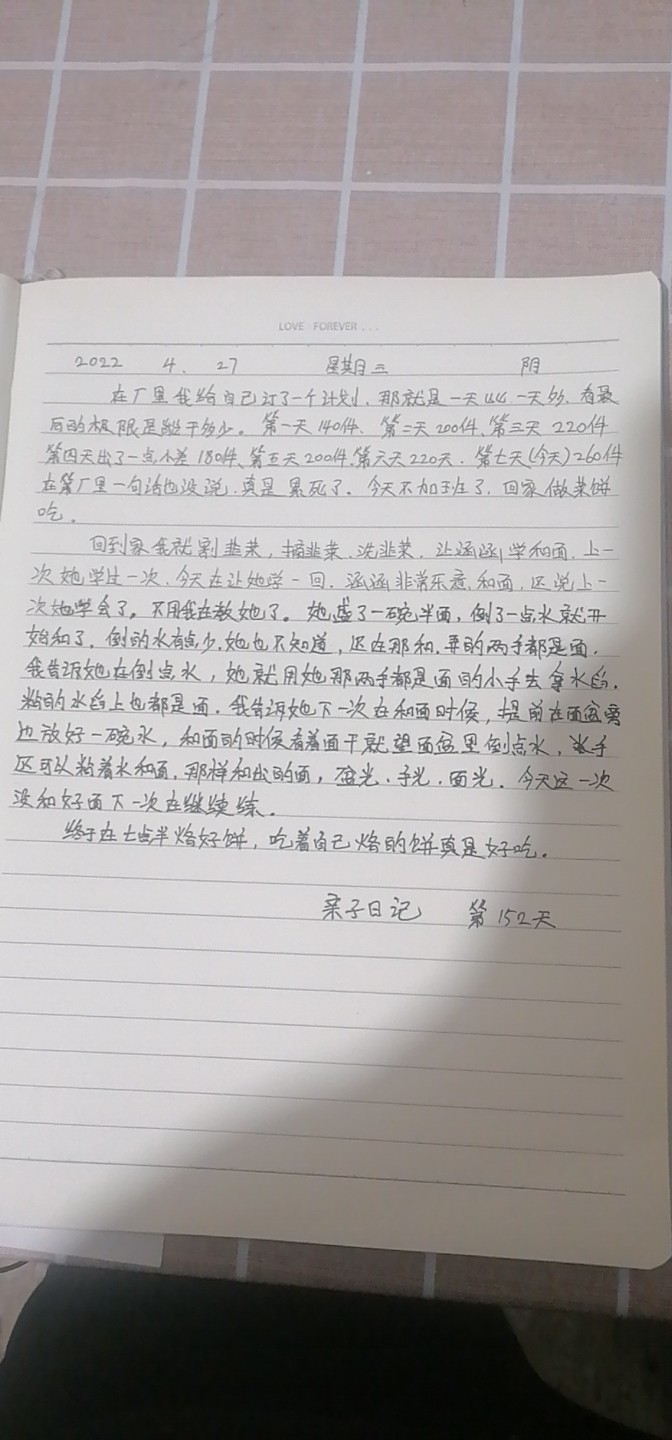 LOVE FOREVER ...
2022 4. 27 星期三 阴
在厂里我给自己订了一个计划，那就是一天比一天多，看最
后的极限是能干多少。第一天140件、第二天200件、第三天220件
第四天出了一点小差180件、第五天200件.第六天220天.第七天(今天)260件
在第厂里一句话也没说.真是累死了。今天不加班了.回家做菜饼
吃。
回到家我就割韭菜，摘韭菜.洗韭菜，让涵涵学和面.上一
次她学过一次.今天在让她学一回.涵涵非常乐意.和面，还说上一
次她学会了。不用我在教她了。她盛了一碗半面，倒了一点水就开
始和了，倒的水有点少.她也不知道，还在那和.弄的两手都是面.
我告诉她在倒点水，她就用她那两手都是面的小手去拿水舀.
粘的水舀上也都是面.我告诉她下一次在和面时候，提前在面盆旁
边放好一碗水，和面的时候看着面干就望面盆里倒点水，手
还可以粘着水和面.那样和出的面，盆光.手光.面光.今天这一次
没和好面下一次在继续练。
终于在七点半烙好饼，吃着自己烙的饼真是好吃。
亲子日记 第152天